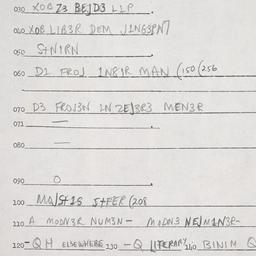 030 XOB Z3 BEJD3 LLP.
040 XOB LIB3R DEM J1NG3PN7
050 S+N1RN
060 D1 FROJ 1N81R MAN (150(256
070 D3 FROJ3N 1N 2EJ3R3 MEN3R
071 —
080 —
090 O
100 MAJS+1S S+FER (208
110 A MODN3R NUM3N- MODN3 NEJM1N3R-
120 - Q H ELSEWHERE 130 - Q LITERARY 140 BINIM Q